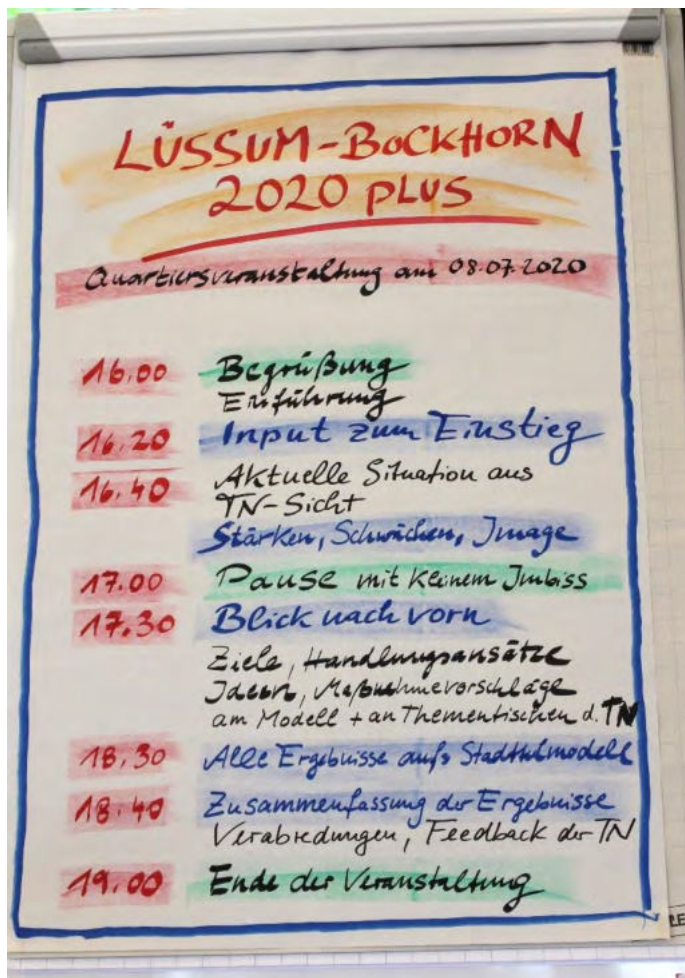 LÜSSUM-BOCKHORN
2020 PLUS
Quartiersveranstaltung am 08.07.2020
16.00 Begrüßung
Einführung
16.20 Input zum Einstieg
16.40 Aktuelle Situation aus
TN-Sicht
Stärken, Schwächen, Image
17.00 Pause mit kleinem Imbiss
17.30 Blick nach vorn
Ziele, Handlungsansätze
Ideen, Maßnahmevorschläge
am Modell + an Thementischen d. TN
18.30 Alle Ergebnisse aufs Stadtteilmodell
18.40 Zusammenfassung der Ergebnisse
Verabredungen, Feedback der TN
19.00 Ende der Veranstaltung